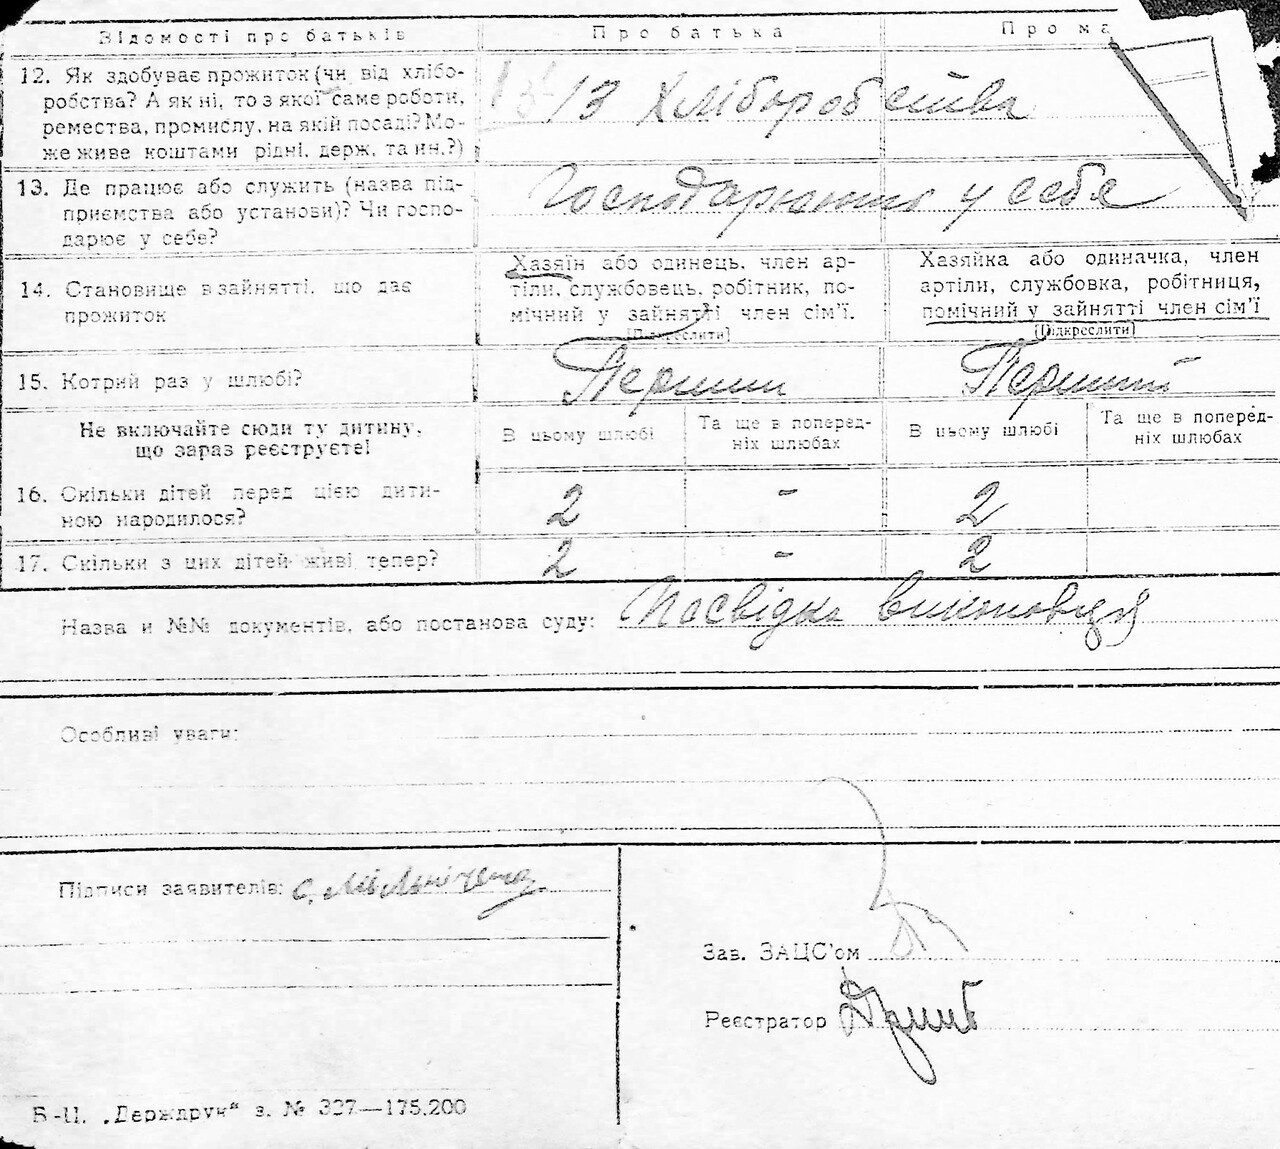 Відомості про батьків
Про батька
Про ма
12. Як здобуває прожиток (чи від хлібо-
робства? А як ні, то з якої саме роботи,
ремества, промислу, на якій посаді? Мо-
же живе коштами рідні, держ. та ин.?)
13 Хліборобства
13. Де працює або служить (назва під-
приємства або установи)? Чи госпо-
дарює у себе?
Господарюють у себе
14. Становище в зайнятті, що дає
прожиток
Хазяїн або одинець, член ар-
тіли, службовець, робітник, по-
мічний у зайнятті член сім'ї.
[Підкреслити]
Хазяйка або одиначка, член
артіли, службовка, робітниця,
помічний у зайнятті член сім'ї
[Підкреслити]
15. Котрий раз у шлюбі?
Перший
Перший
Не включайте сюди ту дитину,
що зараз реєструєте!
В цьому шлюбі
Та ще в поперед-
ніх шлюбах
В цьому шлюбі
Та ще в поперед-
ніх шлюбах
16. Скільки дітей перед цією дити-
ною народилося?
2
-
2
17. Скільки з цих дітей живі тепер?
2
-
2
Назва и №№ документів, або постанова суду: Посвідка виконавця
Особливі уваги:
Підписи заявителів:
Зав. ЗАЦС'ом
Реєстратор
Б-Ц. „Держдрук“ з. № 327—175.200